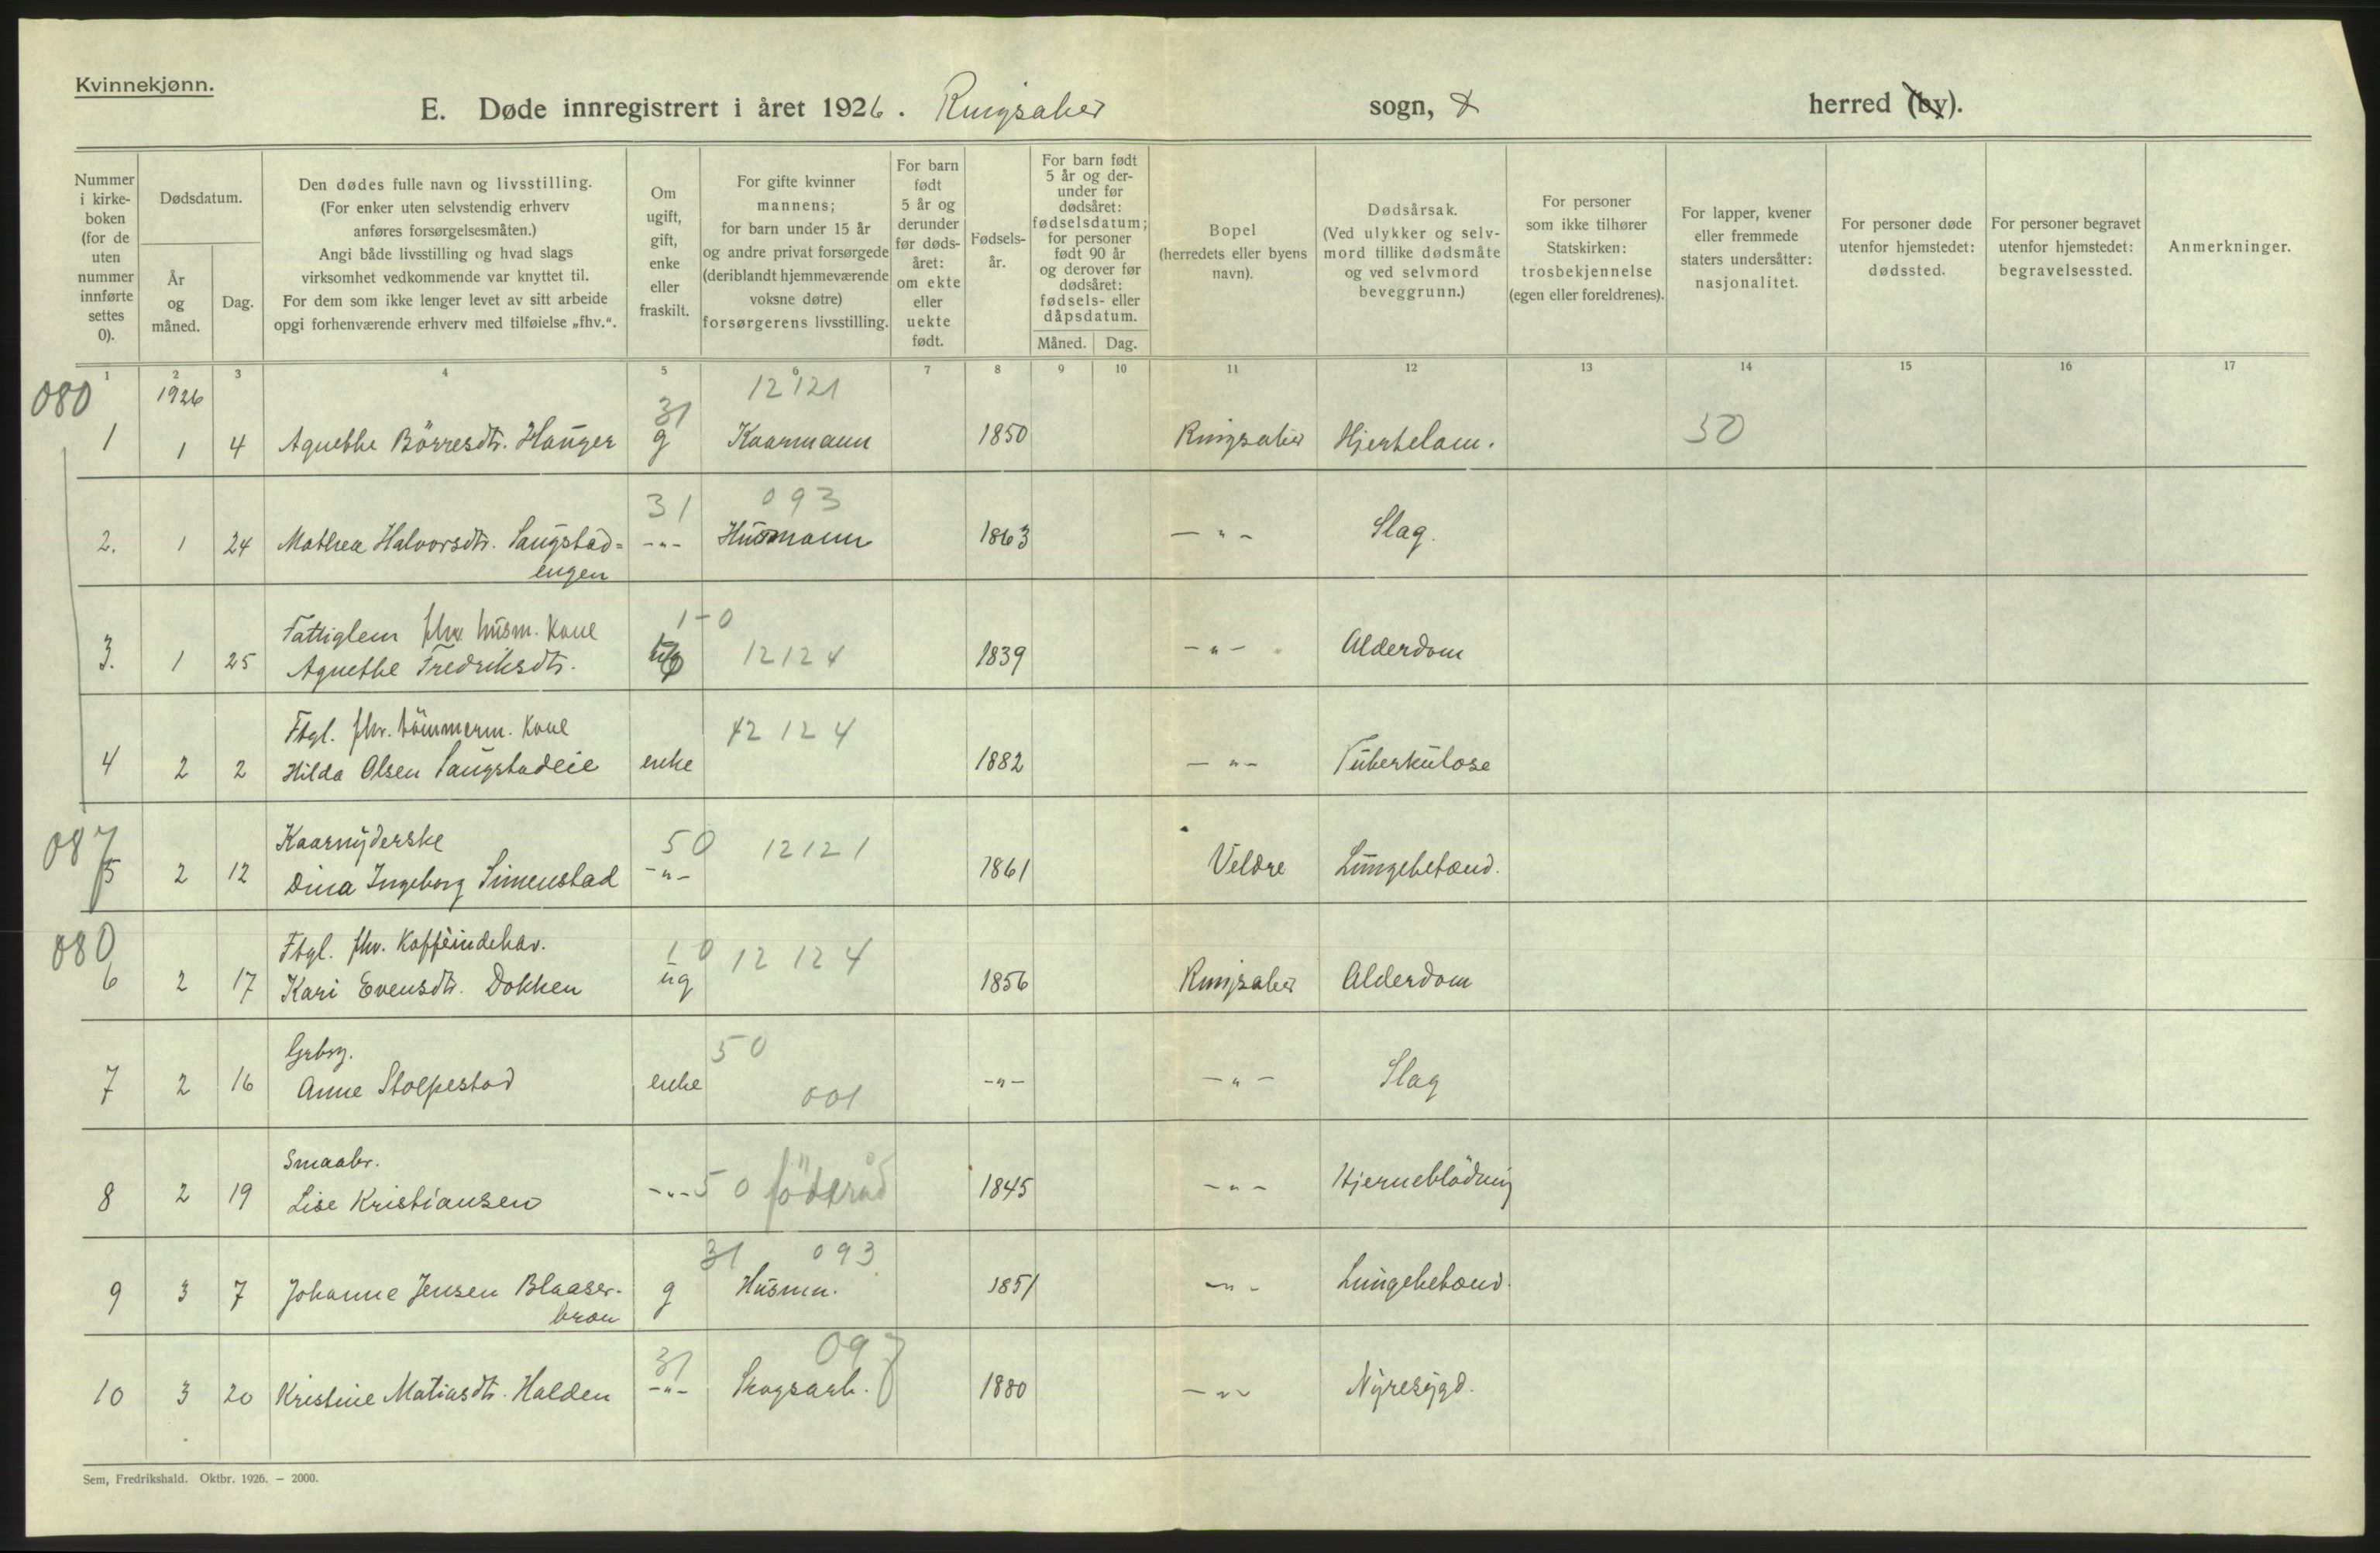 Kvinnekjønn.
E. Døde innregistrert i året 1926. Ringsaker sogn, & herred (by).
Nummer i kirke- boken (for de uten nummer innførte settes 0).
Dødsdatum.
År og måned.
Dag.
Den dødes fulle navn og livsstilling.
(For enker uten selvstendig erhverv
anføres forsørgelsesmåten.)
Angi både livsstilling og hvad slags
virksomhet vedkommende var knyttet til.
For dem som ikke lenger levet av sitt arbeide
opgi forhenværende erhverv med tilføielse „fhv.“.
Om ugift, gift, enke eller fraskilt.
For gifte kvinner
mannens;
for barn under 15 år
og andre privat forsørgede
(deriblandt hjemmeværende
voksne døtre)
forsørgerens livsstilling.
For barn født 5 år og derunder før døds- året: om ekte eller uekte født.
Fødsels- år.
For barn født 5 år og der- under før dødsåret: fødselsdatum; for personer født 90 år og derover før dødsåret: fødsels- eller dåpsdatum.
Måned. Dag.
Bopel
(herredets eller byens
navn).
Dødsårsak.
(Ved ulykker og selv-
mord tillike dødsmåte
og ved selvmord
beveggrunn.)
For personer
som ikke tilhører
Statskirken:
trosbekjennelse
(egen eller foreldrenes).
For lapper, kvener
eller fremmede
staters undersåtter:
nasjonalitet.
For personer døde
utenfor hjemstedet:
dødssted.
For personer begravet
utenfor hjemstedet:
begravelsessted.
Anmerkninger.
1 2 3 4 5 6 7 8 9 10 11 12 13 14 15 16 17
080 1926 31 12121 50
1 1 4 Agnethe Börresdtr. Hauger g Kaarmann 1850 Ringsaker Hjertelam.
31 093
2. 1 24 Mathea Halvorsdtr. Saugstad= -"- Husmann 1863 -"- Slag.
engen
Fattiglem fhv. husm. kone 1-0
3. 1 25 Agnethe Fredriksdtr. 12124 1839 -"- Alderdom
Ftgl. fhv. tömmerm. kone 12124
4 2 2 Hilda Olsen Saugstadeie enke 1882 -"- Tuberkulose
087 Kaarnyderske 50 12121
5 2 12 Dina Ingeborg Simenstad -"- 1861 Veldre Lungebetænd.
080 Ftgl. fhv. Kaffeindehav. 10 12124
6 2 17 Kari Evensdtr. Dokken ug 1856 Ringsaker Alderdom
Grbrg. 50
7 2 16 Anne Stolpestad enke 001 -"- -"- Slag
Smaabr.
8 2 19 Lise Kristiansen -"- 50 föderåd 1845 -"- Hjerneblödning
31 093
9 3 7 Johanne Jensen Blaaser- g Husmn. 1851 -"- Lungebetænd.
braen
31 097
10 3 20 Kristine Matiasdtr. Halden -"- Skogsarb. 1880 -"- Nyresygd.
Sem, Fredrikshald. Oktbr. 1926. – 2000.